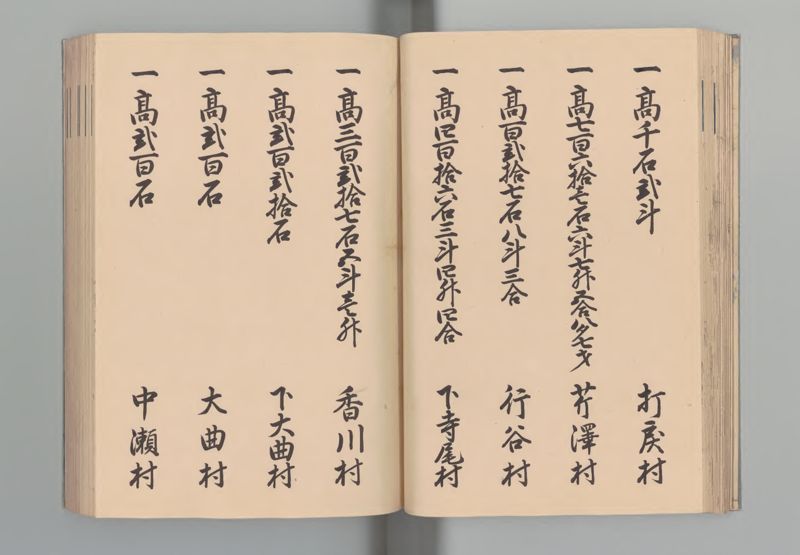 一髙千石弐斗 打戻村
一髙七百六拾壱石六斗七升五合八夕七才 芹澤村
一髙百弐拾七石八斗三合 行谷村
一髙四百拾六石三斗四升四合 下寺尾村
一髙三百弐拾七石五斗壱升 香川村
一髙弐百弐拾石 下大曲村
一髙弐百石 大曲村
一髙弐百石 中瀬村